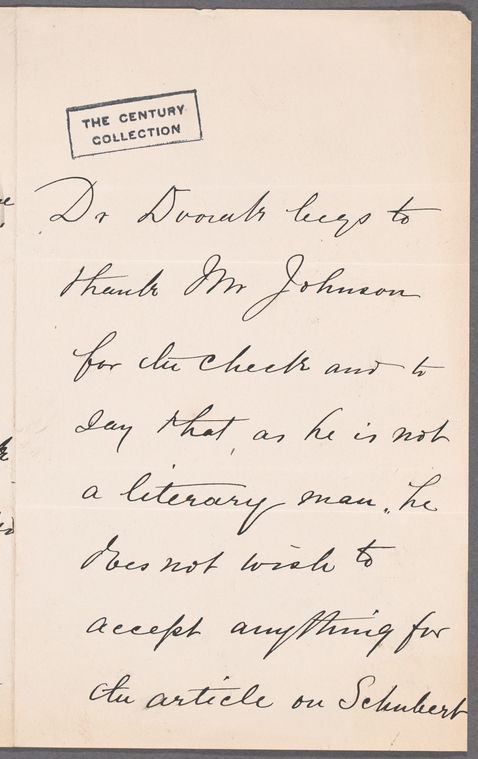 THE CENTURY
COLLECTION
Dr Dvorak begs to
thank Mr Johnson
for the check and to
say that, as he is not
a literary man, he
does not wish to
accept anything for
the article on Schubert